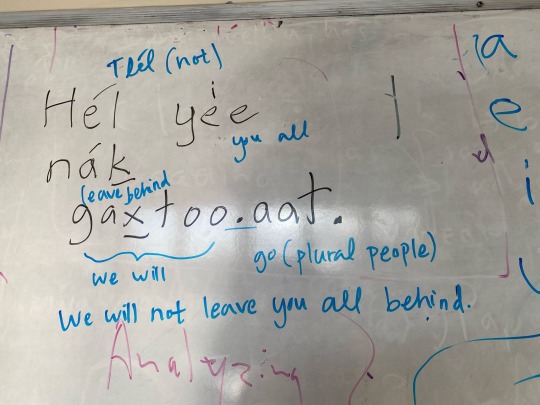 Tléil (not)
Hél yée
i
you all
nák̲
leave behind
gax̲too.aat.
we will
go (plural people)
We will not leave you all behind.
Analyzing
a
e
i